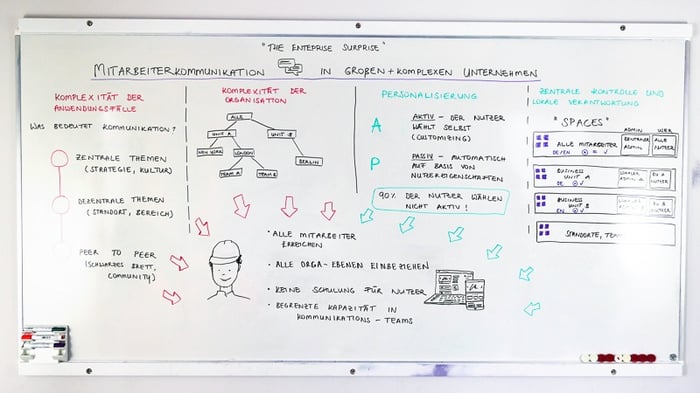 "THE ENTEPRISE SURPRISE"
MITARBEITERKOMMUNIKATION IN GROßEN + KOMPLEXEN UNTERNEHMEN
KOMPLEXITÄT DER
ANWENDUNGSFÄLLE
WAS BEDEUTET KOMMUNIKATION?
ZENTRALE THEMEN
(STRATEGIE, KULTUR)
DEZENTRALE THEMEN
(STANDORT, BEREICH)
PEER TO PEER
(SCHWARZES BRETT,
COMMUNITY)
KOMPLEXITÄT DER
ORGANISATION
ALLE
UNIT A
UNIT B
NEW YORK
LONDON
BERLIN
TEAM A
TEAM B
PERSONALISIERUNG
A
AKTIV - DER NUTZER
WÄHLT SELBST
(CUSTOMIZING)
P
PASSIV - AUTOMATISCH
AUF BASIS VON
NUTZEREIGENSCHAFTEN
90% DER NUTZER WÄHLEN
NICHT AKTIV!
ZENTRALE KONTROLLE UND
LOKALE VERANTWORTUNG
"SPACES"
ADMIN USER
ALLE MITARBEITER
DE/EN
ZENTRALER
ADMIN
ALLE
NUTZER
BUSINESS
UNIT A
DE
LOKALER
ADMIN A
BU A
NUTZER
BUSINESS
UNIT B
EN
LOKALER
ADMIN B
BU B
NUTZER
STANDORTE, TEAMS
• ALLE MITARBEITER
ERREICHEN
• ALLE ORGA-EBENEN EINBEZIEHEN
• KEINE SCHULUNG FÜR NUTZER
• BEGRENZTE KAPAZITÄT IN
KOMMUNIKATIONS-TEAMS